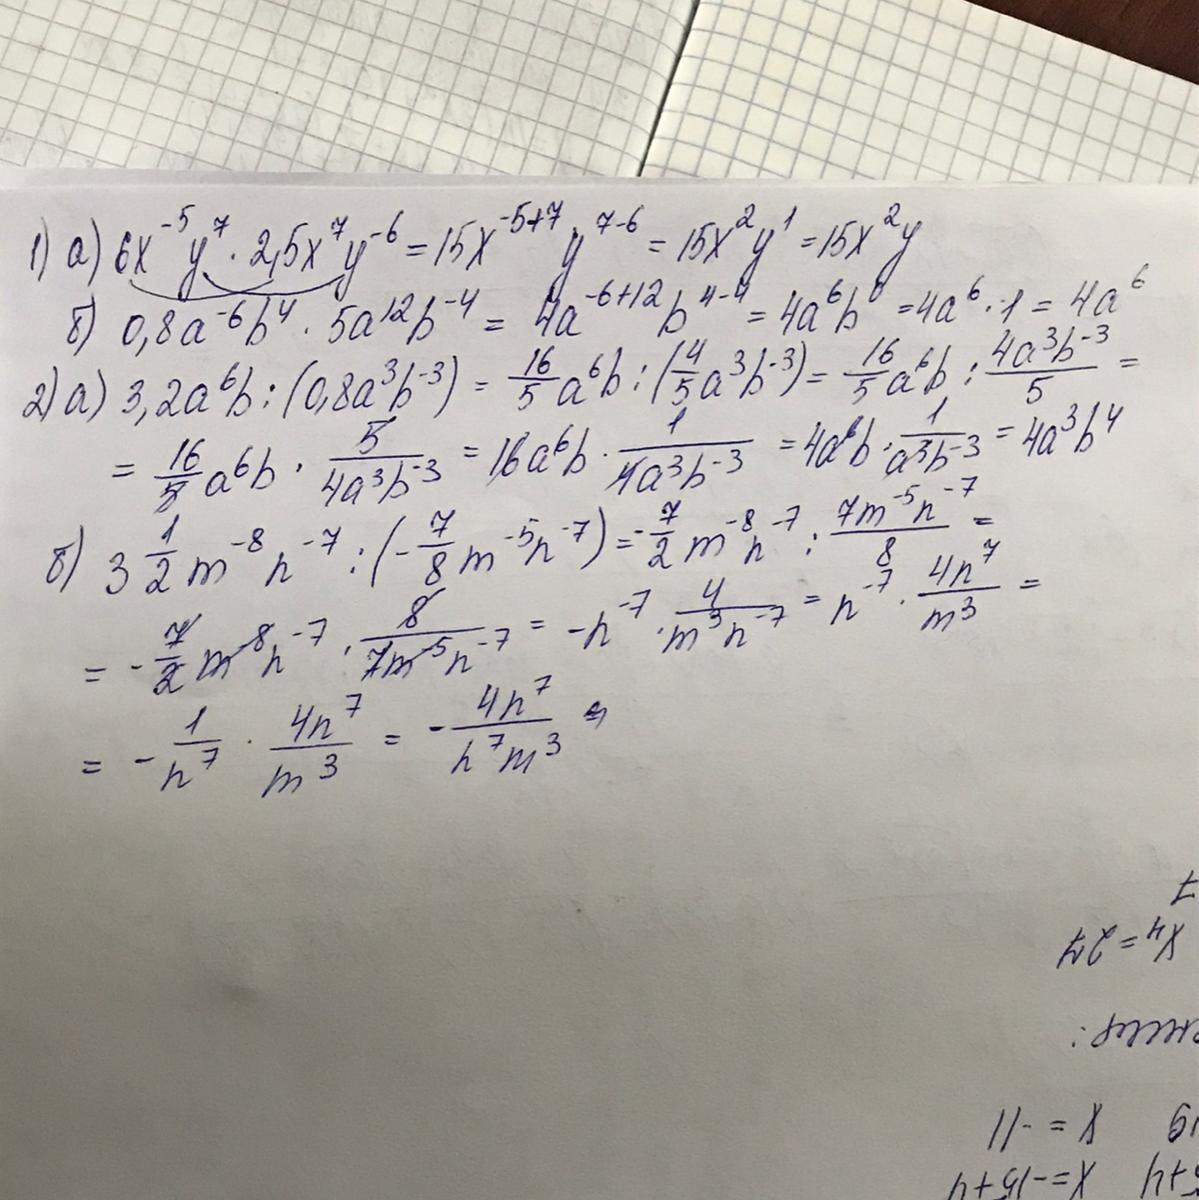 1) а) 6x⁻⁵y⁷ · 2,5x⁷y⁻⁶ = 15x⁻⁵⁺⁷y⁷⁻⁶ = 15x²y¹ = 15x²y
б) 0,8a⁻⁶b⁴ · 5a¹²b⁻⁴ = 4a⁻⁶⁺¹²b⁴⁻⁴ = 4a⁶b⁰ = 4a⁶ · 1 = 4a⁶
2) а) 3,2a⁶b : (0,8a³b⁻³) = 16/5 a⁶b : (4/5 a³b⁻³) = 16/5 a⁶b : 4a³b⁻³/5 =
= 16/5 a⁶b · 5/4a³b⁻³ = 16a⁶b · 1/4a³b⁻³ = 4a⁶b · 1/a³b⁻³ = 4a³b⁴
б) 3 1/2 m⁻⁸n⁻⁷ : (-7/8 m⁻⁵n⁻⁷) = -7/2 m⁻⁸n⁻⁷ : 7m⁻⁵n⁻⁷/8 =
= -7/2 m⁻⁸n⁻⁷ · 8/7m⁻⁵n⁻⁷ = -n⁻⁷ · 4/m³n⁻⁷ = n⁻⁷ · 4n⁷/m³ =
= -1/n⁷ · 4n⁷/m³ = -4n⁷/n⁷m³ =
x = -15+4
x = -11
x₄ = 27